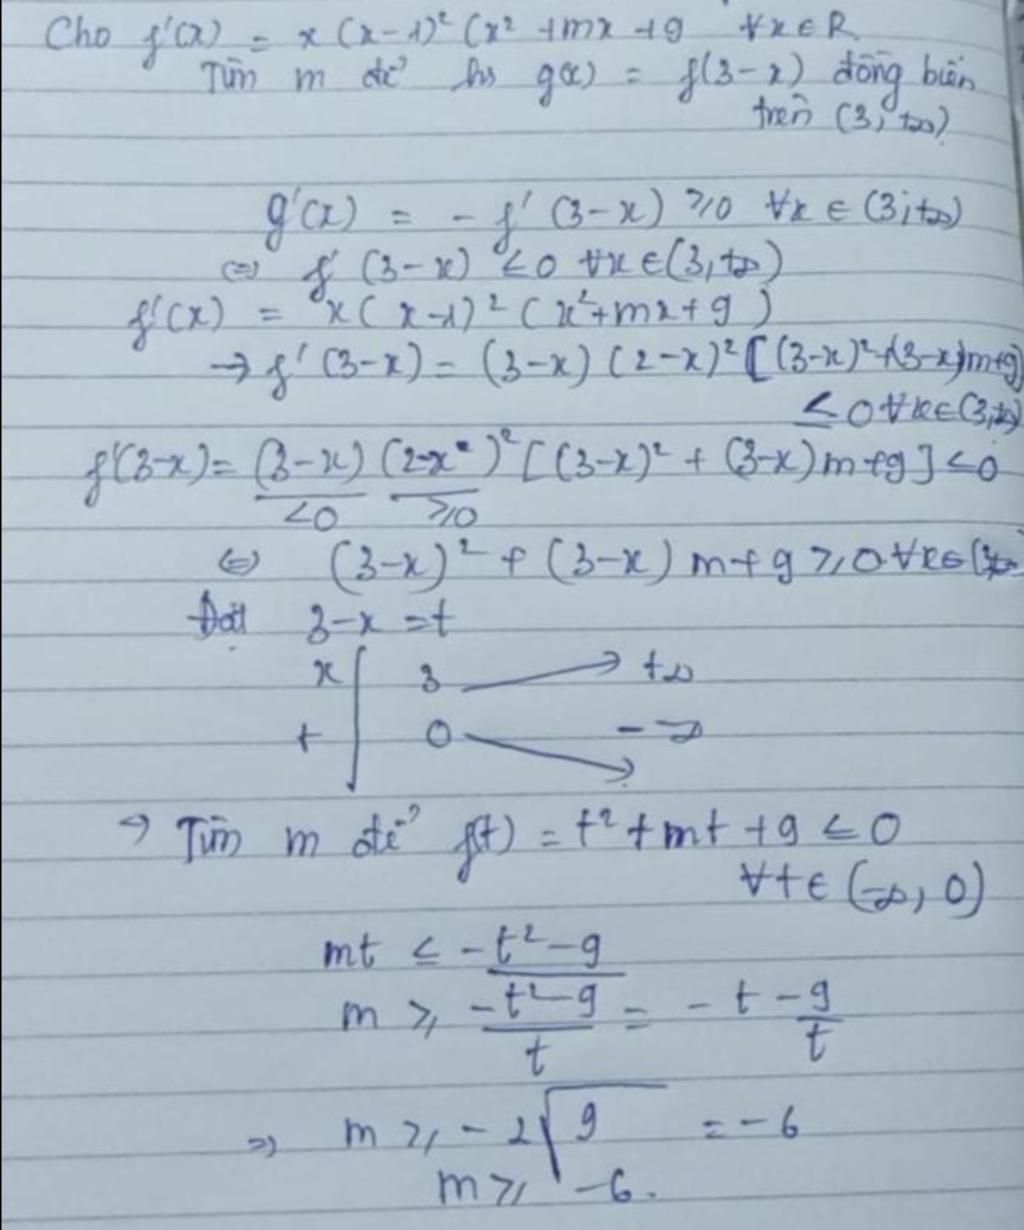 Cho f'(x) = x(x-1)² (x² + mx + 9 ∀x∈R
Tìm m để hs g(x) = f(3-x) đồng biến
trên (3; +∞)
g'(x) = - f' (3-x) ≥0 ∀x ∈ (3;+∞)
⇔ f' (3-x) ≤0 ∀x∈(3,+∞)
f'(x) = x(x-1)² (x²+mx+9)
→ f' (3-x) = (3-x) (2-x)² [(3-x)²+(3-x)m+9]
≤0 ∀x∈(3,+∞)
f'(3-x) = (3-x) (2-x)² [(3-x)² + (3-x)m+9] ≤0
<0 ≥0
⇔ (3-x)² + (3-x) m+9 ≥0 ∀x∈(3,+∞
Đặt 3-x =t
x 3 → +∞
t 0 → -∞
→ Tìm m để f(t) = t² + mt +9 ≤0
∀t∈ (-∞, 0)
mt ≤ -t²-9
m ≥ (-t²-9)/t = -t - 9/t
⇒ m ≥ -2√9 = -6
m ≥ -6.